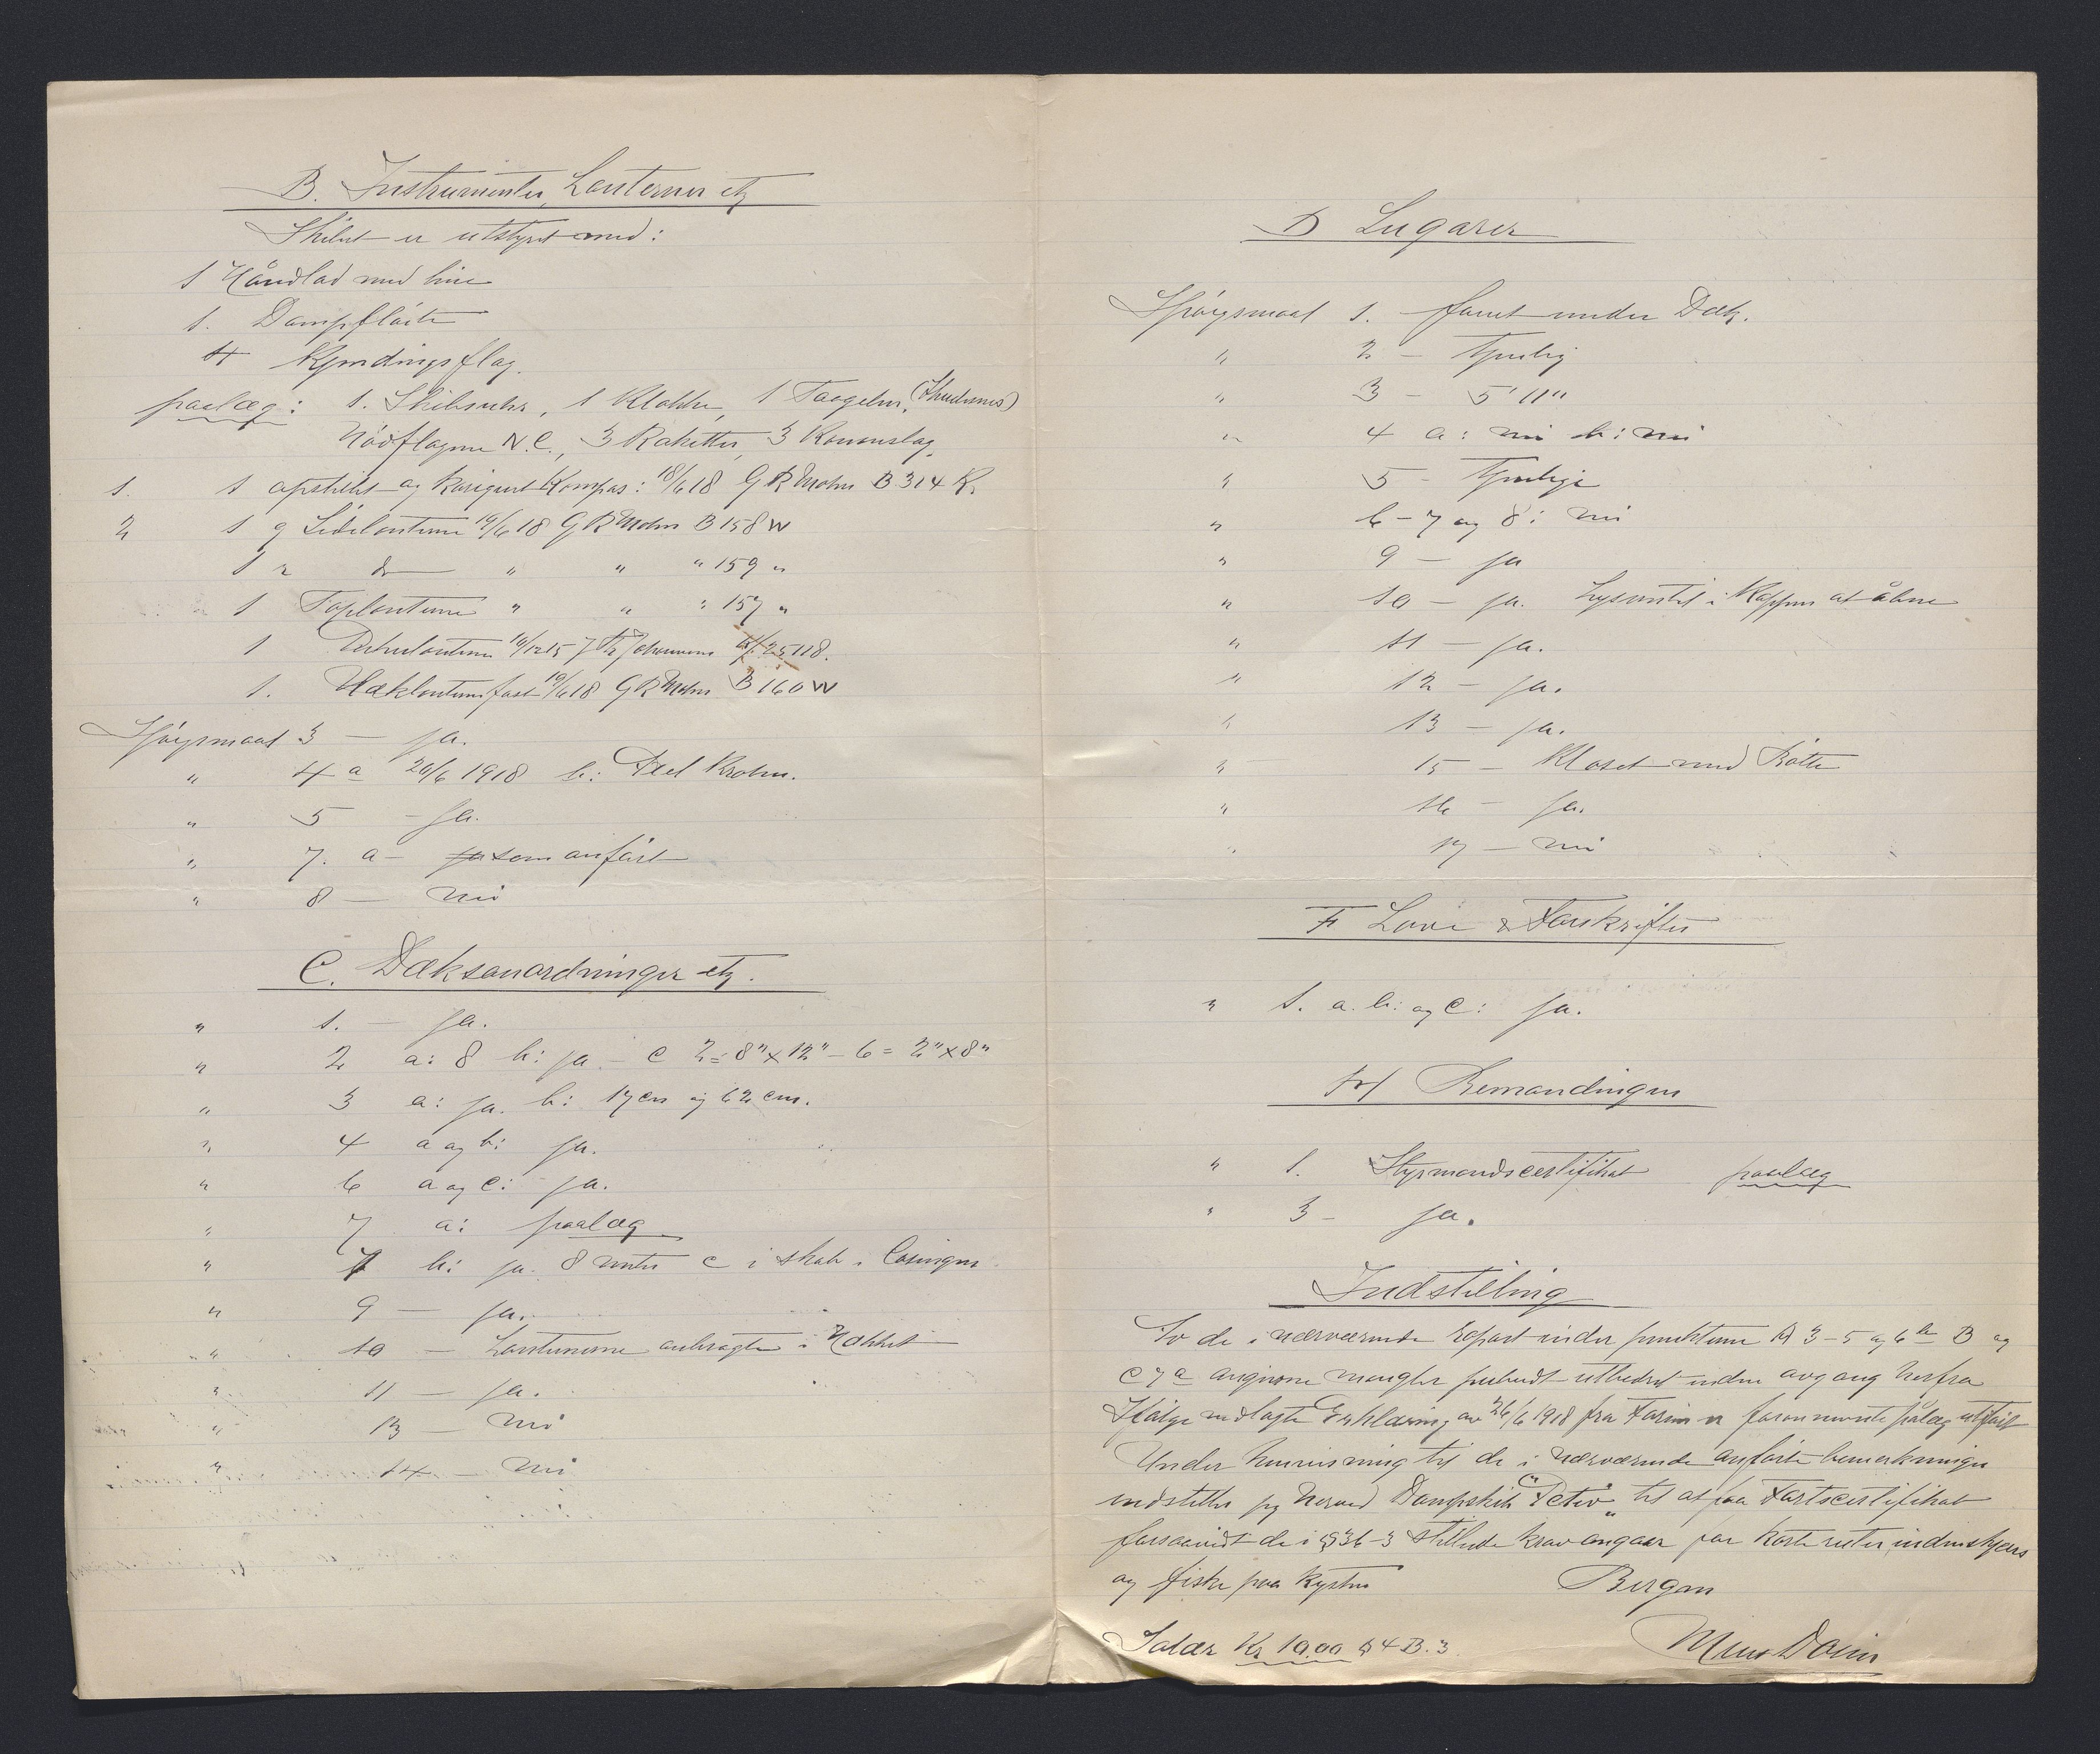 B. Instrumenter, Lanterner etz
Skibet er utstyret med:
1 Håndlod med line
1. Dampfløite
4 Kjendingsflag.
paalæg: 1. Skibsuhr, 1 Klokke, 1 Taagelur, (Skudenes)
Nødflagene N.C., 3 Raketter, 3 Kanonslag.
1. 1 opstillet og korigeret Kompas: 18/6 18 G R Mohn B 314 K.
2 1 g Sidelanterne 19/6 18 G R Mohn B 158 W
1 r do " " " 159 "
1 Toplanterne " " " 157 "
1 Dækslanterne 10/12 15 J Johannesen 25118.
1. Hæklanterne fast 19/6 18 G R Mohn B 160 W
Spörgsmaal 3 — ja.
" 4 a 20/6 1918 b: Krohn.
" 5 - ja.
" 7. a - ja som anfört
" 8 — nei
C. Dæksanordninger etz.
" 1. — ja.
" 2 a: 8 b: ja - c 2 = 8" x 12" - 6 = 2" x 8"
" 3 a: ja. b: 17 cm og 62 cm.
" 4 a og b: ja.
" 6 a og c: ja.
" 7 a: paalæg
" 7 b: ja. 8 meter c i skab i Casingen
" 9 — ja.
" 10 — Lanternerne anbragte i Nokket
" 11 — ja.
" 13 — nei
" 14 — nei
D Lugarer
Spörgsmaal 1. forut under Dæk.
" 2 - Tjenlig
" 3 - 5' 11"
" 4 a: nei b: nei
" 5 - Tjenlige
" 6 - 7 og 8: nei
" 9 — ja
" 10 — ja. Lysventil i Kappen at åbne
" 11 — ja.
" 12 — ja.
" 13 — ja.
" 15 — Kloset med Bötte
" 16 — ja.
" 17 — nei
F Love & Forskrifter
" 1. a. b. og c: ja.
H Bemandingen
" 1. Styrmandscertifikat paalæg
" 3 - ja.
Indstilling
To de i nærværende Report under punkterne A 3 - 5 og 6 b B og
C 7 a angivne mangler paabudt utbedret inden avgang herfra
Ifölge vedlagte Erklæring av 26/6 1918 fra er forannevnte pålæg utfört
Under henvisning til de i nærværende anförte bemerkninger
indstiller jeg herved Dampskib "Peter" til at faa Fartscertifikat
forsaavidt de i § 36 - 3 stillede krav angaar for korte reiser indenskjærs
og fiske paa kysten Bergen
Salær Kr 10.00 § 4 B. 3.